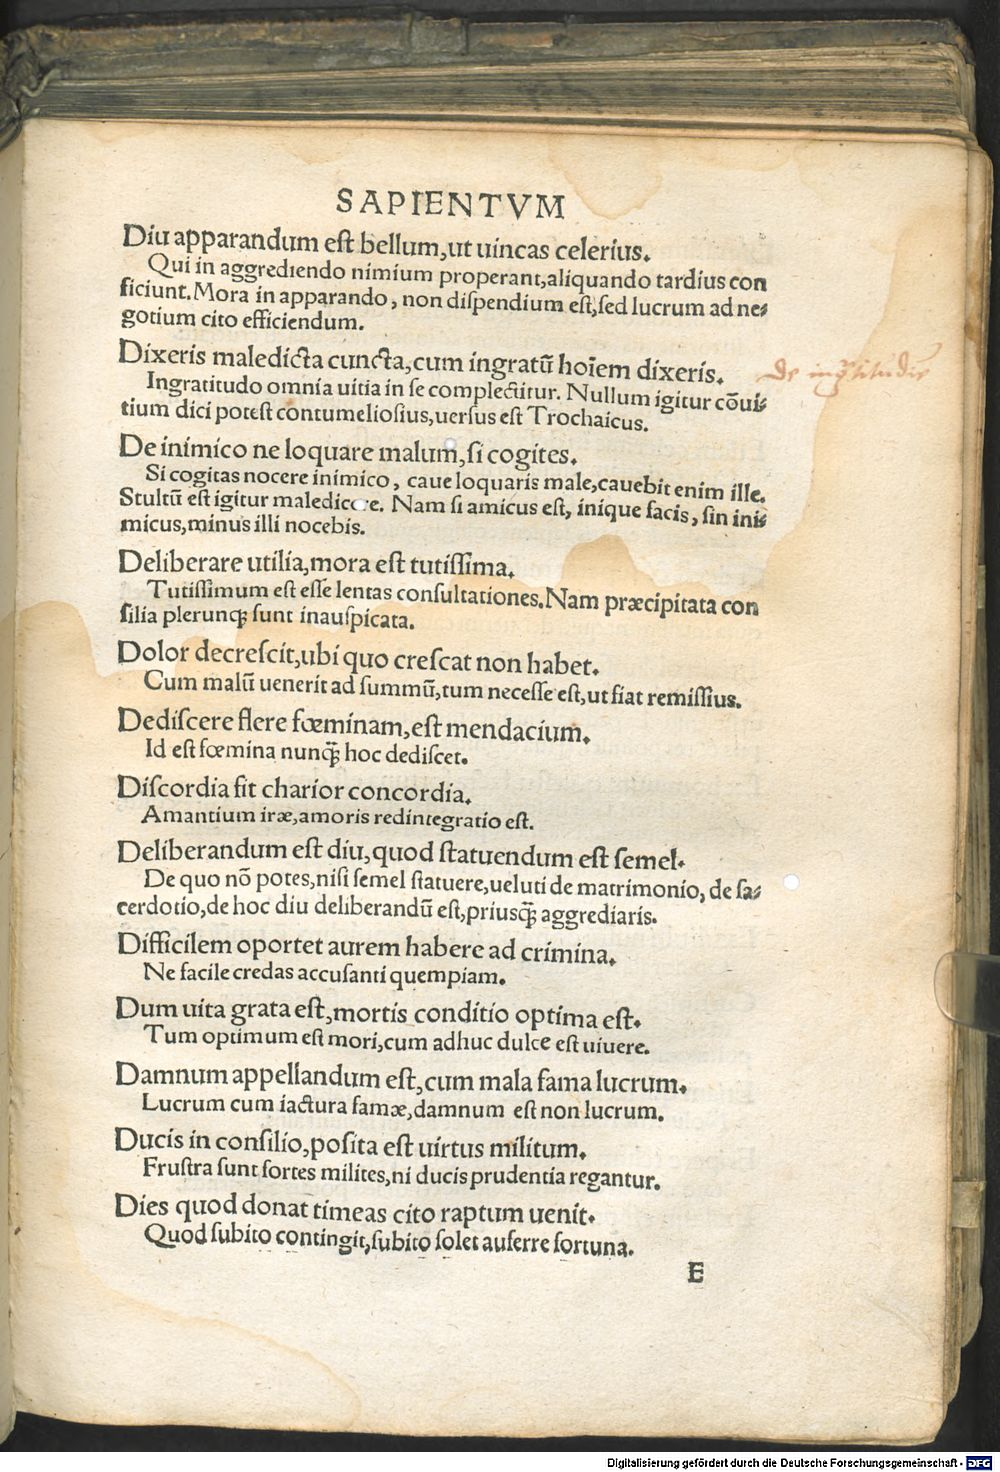 SAPIENTVM
Diu apparandum est bellum, ut uincas celerius.
Qui in aggrediendo nimium properant, aliquando tardius con
ficiunt. Mora in apparando, non dispendium est, sed lucrum ad ne⸗
gotium cito efficiendum.
Dixeris maledicta cuncta, cum ingratū hoīem dixeris.
De ingratitudine
Ingratitudo omnia uitia in se complectitur. Nullum igitur cōui⸗
tium dici potest contumeliosius, uersus est Trochaicus.
De inimico ne loquare malum, si cogites.
Si cogitas nocere inimico, caue loquaris male, cauebit enim ille.
Stultū est igitur maledicere. Nam si amicus est, inique facis, sin ini⸗
micus, minus illi nocebis.
Deliberare utilia, mora est tutissima.
Tutissimum est esse lentas consultationes. Nam præcipitata con
silia plerunqꝫ sunt inauspicata.
Dolor decrescit, ubi quo crescat non habet.
Cum malū uenerit ad summū, tum necesse est, ut fiat remissius.
Dediscere flere fœminam, est mendacium.
Id est fœmina nunqꝫ̃ hoc dediscet.
Discordia fit charior concordia.
Amantium iræ, amoris redintegratio est.
Deliberandum est diu, quod statuendum est semel.
De quo nō potes, nisi semel statuere, ueluti de matrimonio, de sa⸗
cerdotio, de hoc diu deliberandū est, priusqꝫ̃ aggrediaris.
Difficilem oportet aurem habere ad crimina.
Ne facile credas accusanti quempiam.
Dum uita grata est, mortis conditio optima est.
Tum optimum est mori, cum adhuc dulce est uiuere.
Damnum appellandum est, cum mala fama lucrum.
Lucrum cum iactura famæ, damnum est non lucrum.
Ducis in consilio, posita est uirtus militum.
Frustra sunt fortes milites, ni ducis prudentia regantur.
Dies quod donat timeas cito raptum uenit.
Quod subito contingit, subito solet auferre fortuna.
E
Digitalisierung gefördert durch die Deutsche Forschungsgemeinschaft - DFG